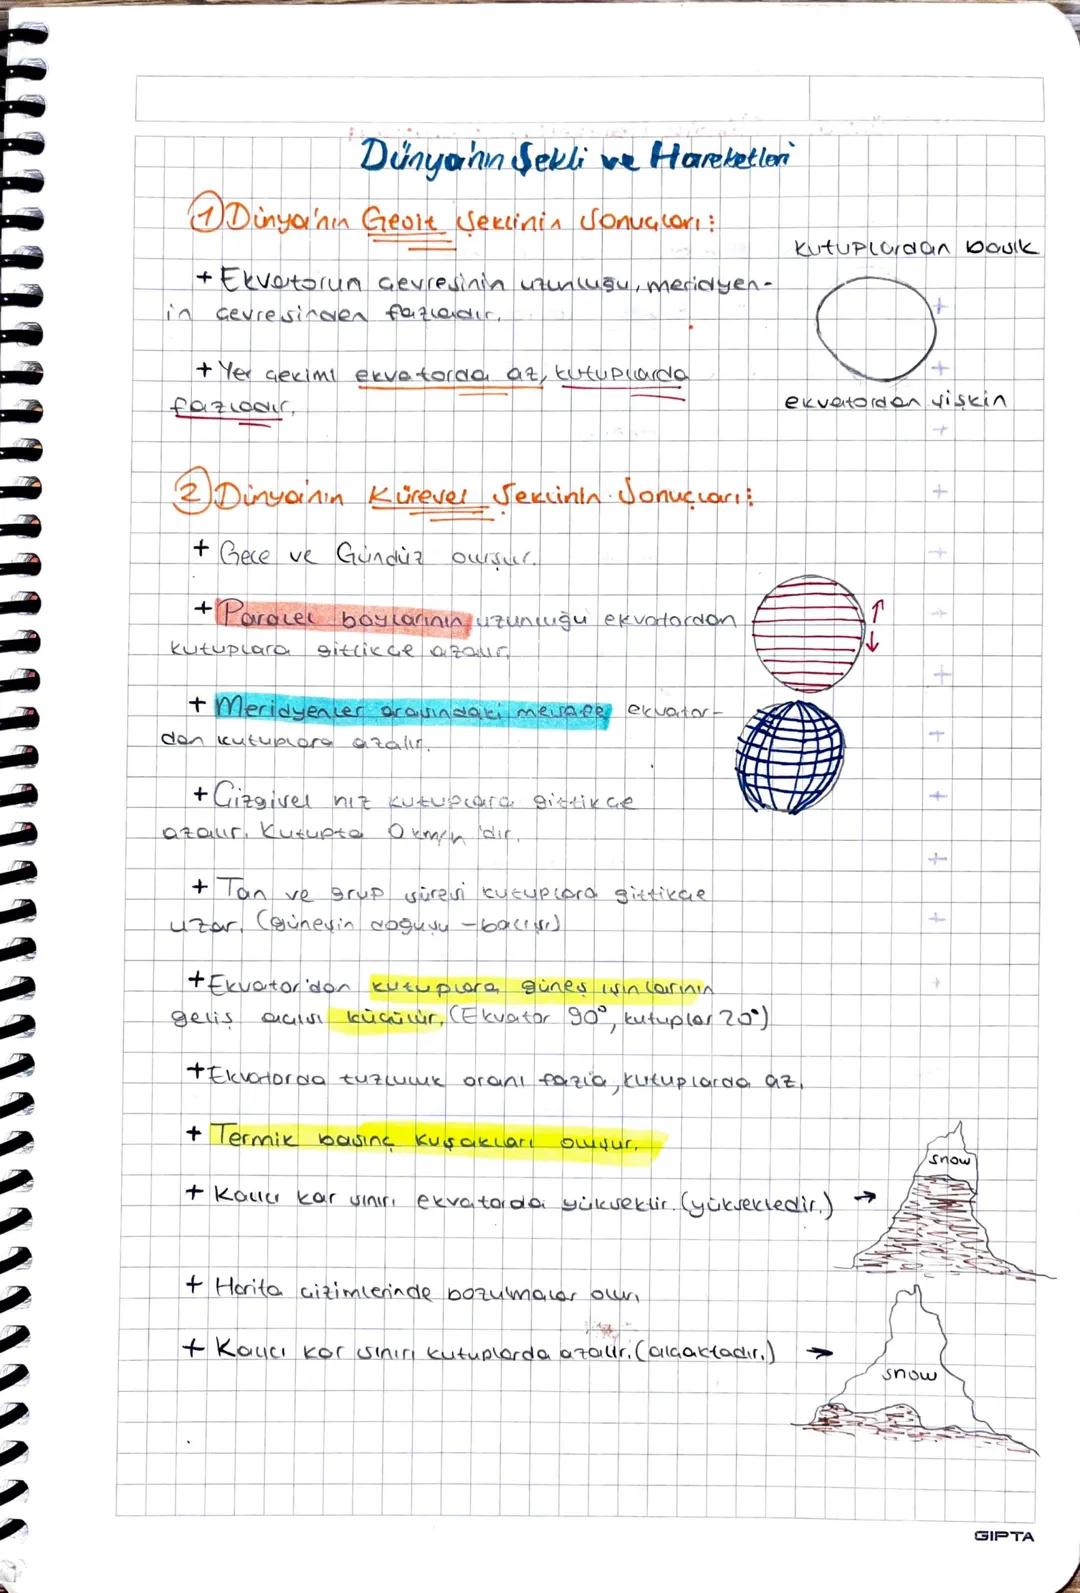 Dünya'nın Şekli ve Hareketleri
1 Dünya'nın Geoit Şeklinin Sonuçları:
Kutuplardan basık
+ Ekvatorun çevresinin uzunluğu, meridyen-
in çevresinden fazladır.
+ Yer çekimi ekvatorda az, kutuplarda
fazladır.
ekvatordan şişkin
2 Dünya'nın Küresel Şeklinin Sonuçları:
+ Gece ve Gündüz oluşur.
+ Paralel boylarının uzunluğu ekvatordan
kutuplara gittikçe azalır.
+ Meridyenler arasındaki mesafe ekvator-
dan kutuplara azalır.
+ Çizgisel hız kutuplara gittikçe
azalır. Kutupta 0 km/h 'dir.
+ Tan ve grup süresi kutuplara gittikçe
uzar. (güneşin doğuşu - batışı)
+ Ekvator'dan kutuplara güneş ışınlarının
geliş açısı küçülür. (Ekvator 90°, kutuplar 20°)
+ Ekvatorda tuzluluk oranı fazla, kutuplarda az.
+ Termik basınç kuşakları oluşur.
snow
+ Kalıcı kar sınırı ekvatorda yüksektir. (yüksektedir.) →
+ Harita çizimlerinde bozulmalar olur.
+ Kalıcı kar sınırı kutuplarda azalır. (alçaktadır.) →
snow
GIPTA